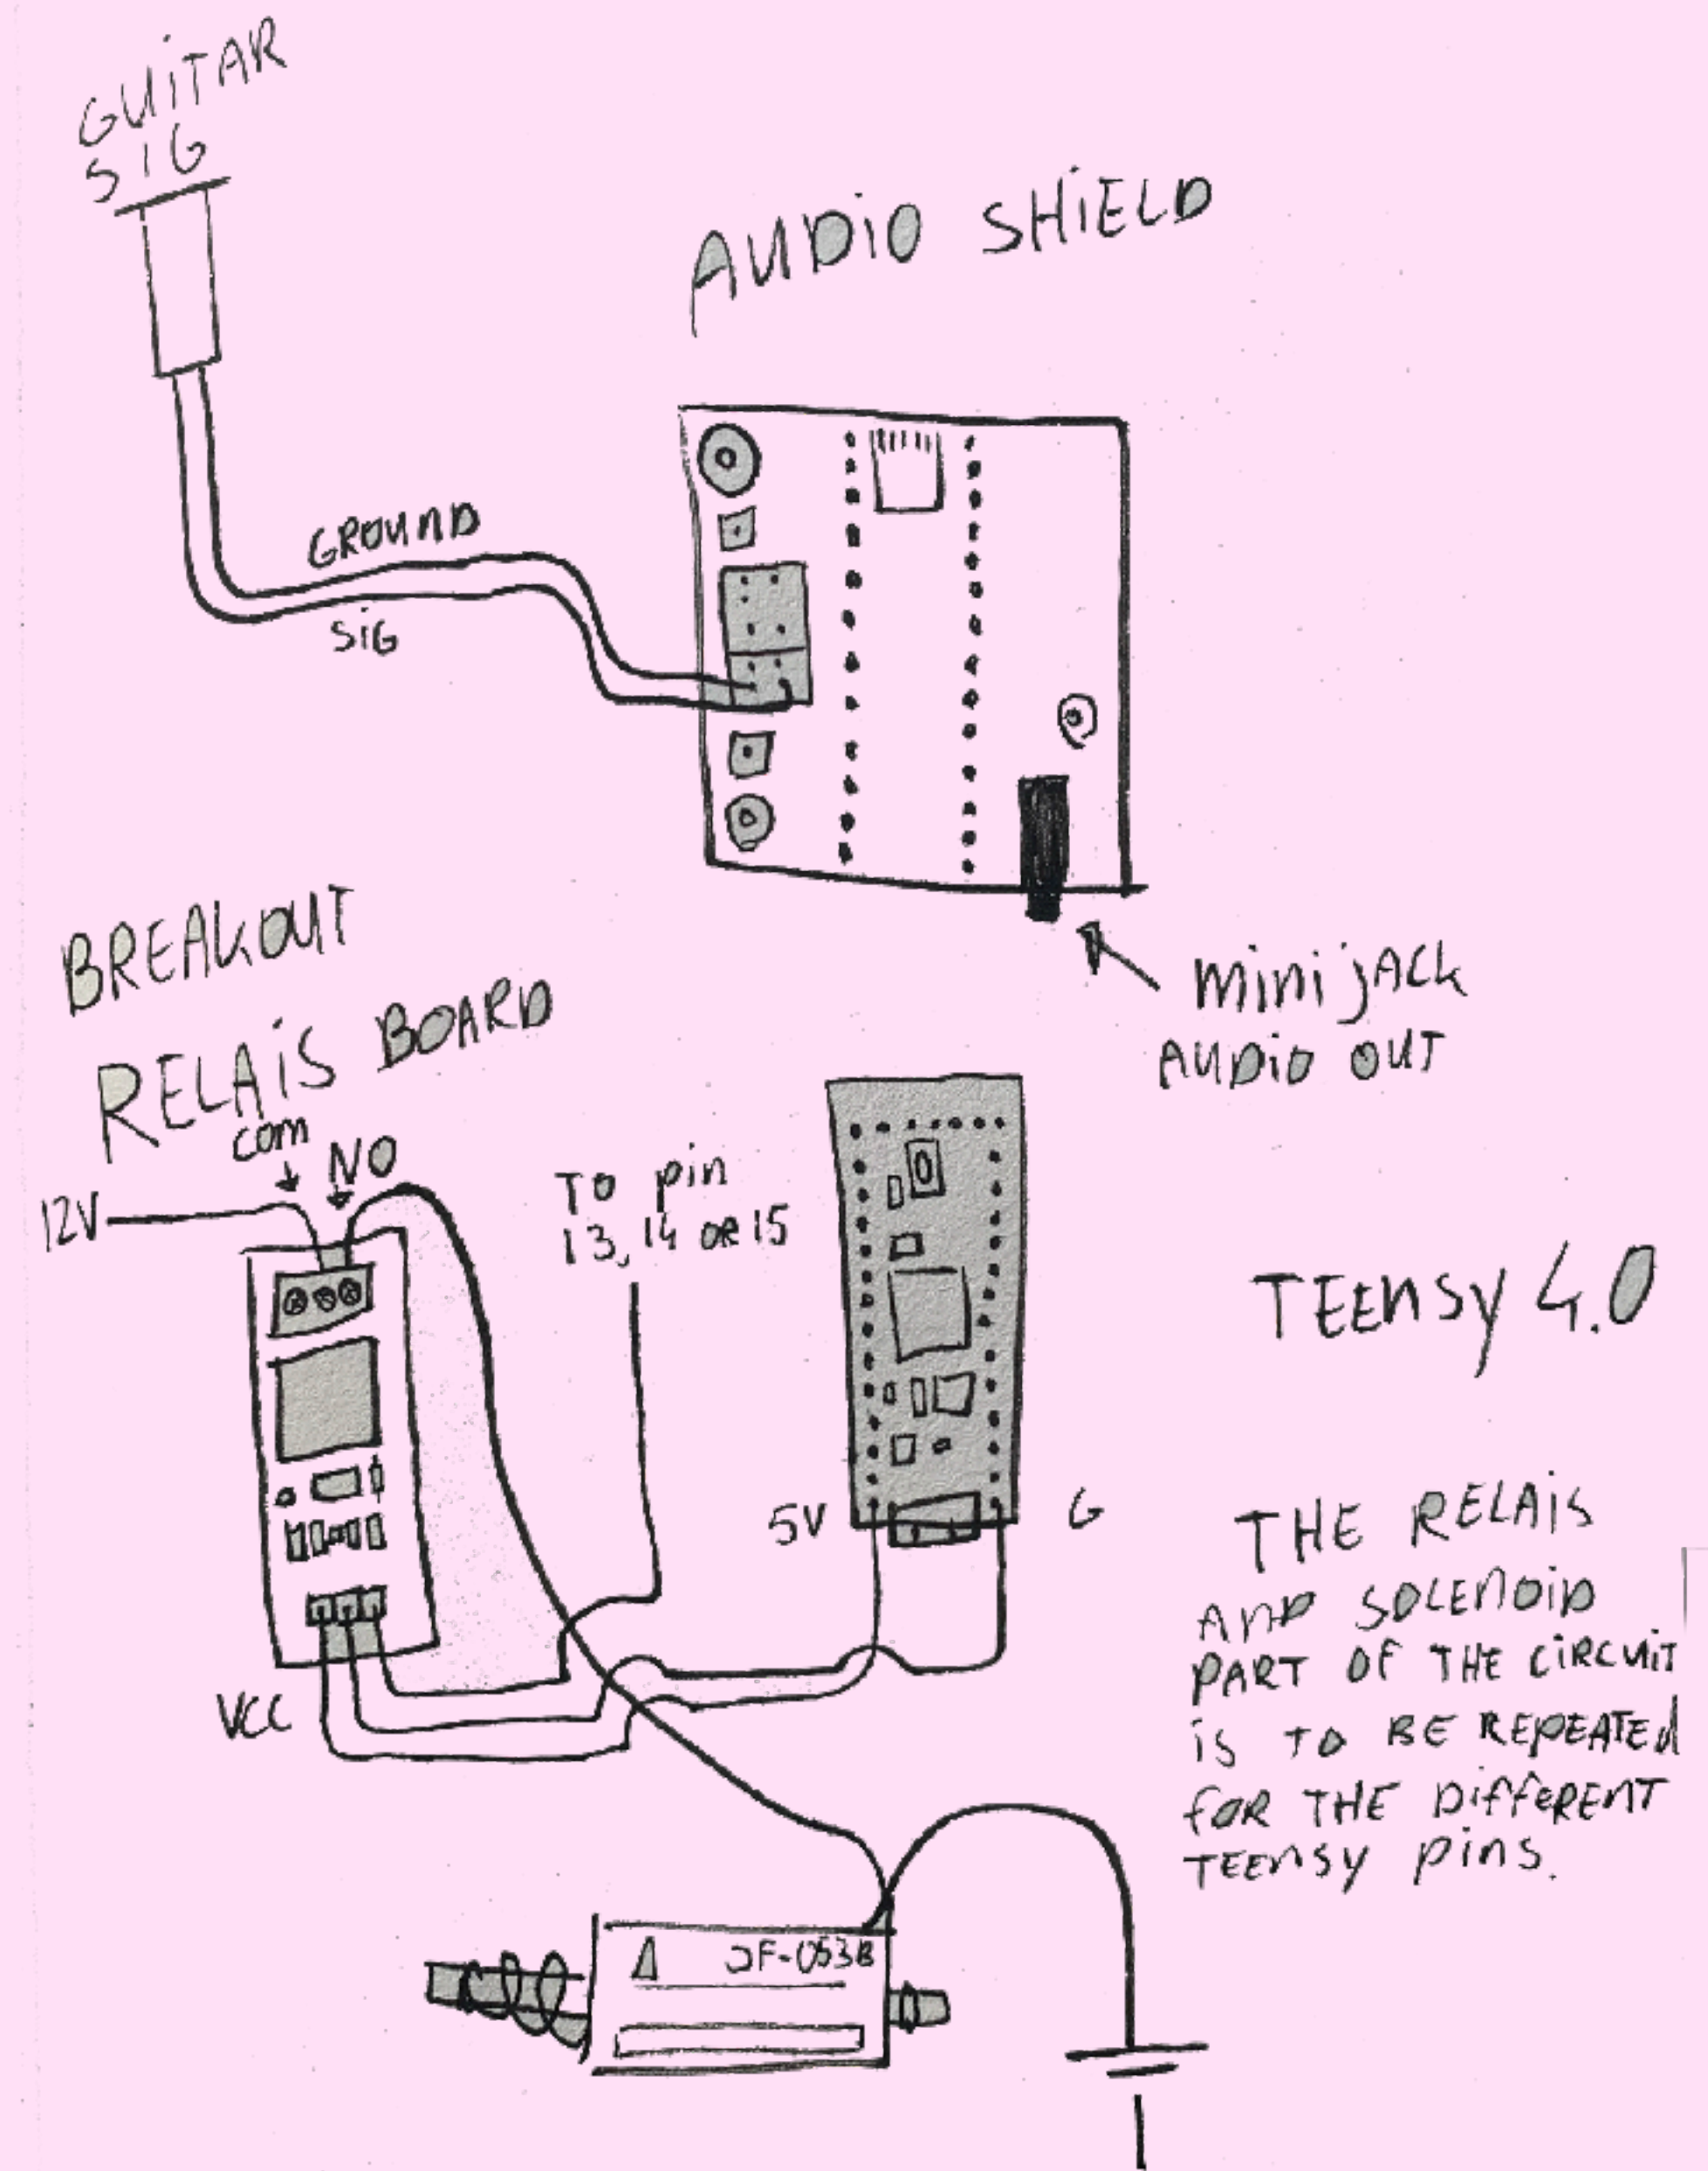 GUITAR
SIG
AUDIO SHIELD
GROUND
SIG
MINIJACK
AUDIO OUT
BREAKOUT
RELAIS BOARD
COM
NO
12V
TO pin
13, 14 OR 15
TEENSY 4.0
5V
G
VCC
THE RELAIS
AND SOLENOID
PART OF THE CIRCUIT
IS TO BE REPEATED
FOR THE DIFFERENT
TEENSY PINS.
JF-053B